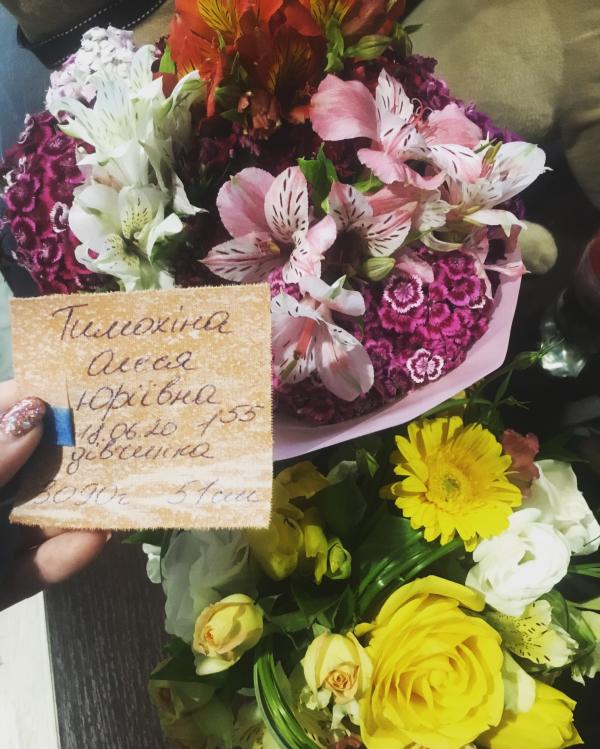 Тимохіна
Олеся
Юріївна
18.06.20 1 55
дівчинка
3090г 51см